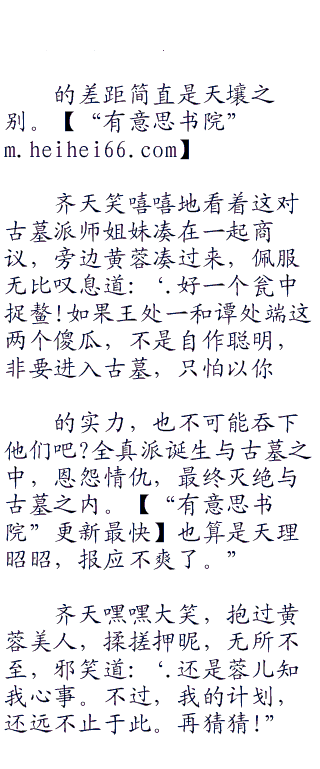 的差距简直是天壤之
别。【“有意思书院”
m.heihei66.com】
齐天笑嘻嘻地看着这对
古墓派师姐妹凑在一起商
议，旁边黄蓉凑过来，佩服
无比叹息道：‘.好一个瓮中
捉鳌!如果王处一和谭处端这
两个傻瓜，不是自作聪明，
非要进入古墓，只怕以你
的实力，也不可能吞下
他们吧?全真派诞生与古墓之
中，恩怨情仇，最终灭绝与
古墓之内。【“有意思书
院”更新最快】也算是天理
昭昭，报应不爽了。”
齐天嘿嘿大笑，抱过黄
蓉美人，揉搓押昵，无所不
至，邪笑道：‘.还是蓉儿知
我心事。不过，我的计划，
还远不止于此。再猜猜!”